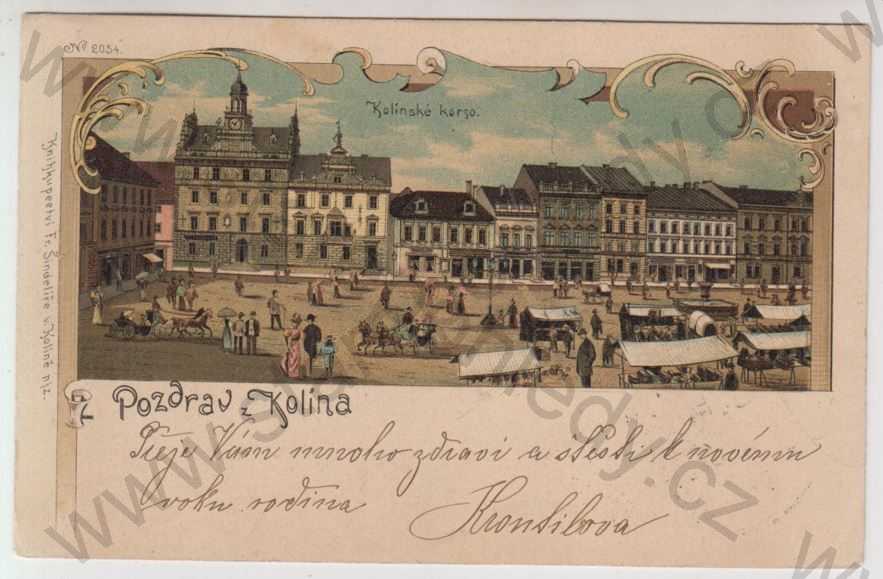 No 2034.
Kolínské korso.
Knihkupectví Fr. Šindeláře v Kolíně n/L.
Pozdrav z Kolína
Přeje Vám mnoho zdraví a štěstí k novému
roku rodina
www.stare-pohledy.cz